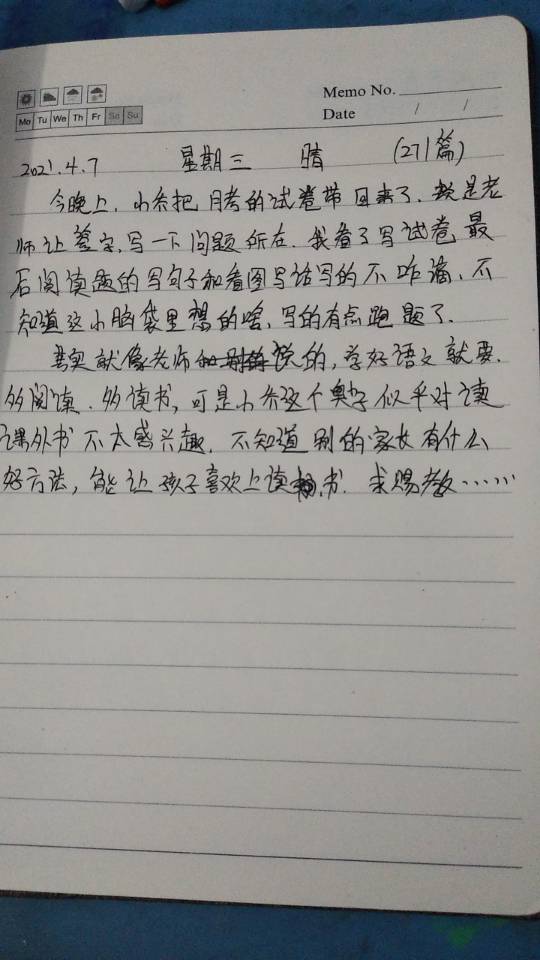 Memo No.
Mo Tu We Th Fr Sa Su
Date / /
2021.4.7 星期三 晴 (271篇)
今晚上,小乔把月考的试卷带回来了.说是老
师让签字,写一下问题所在.我看了写试卷,最
后阅读题的写句子和看图写话写的不咋滴,不
知道这小脑袋里想的啥,写的有点跑题了.
其实就像老师说的,学好语文就要
多阅读.多读书,可是小乔这个孩子似乎对读
课外书不太感兴趣.不知道别的家长有什么
好方法,能让孩子喜欢上读书.求赐教……